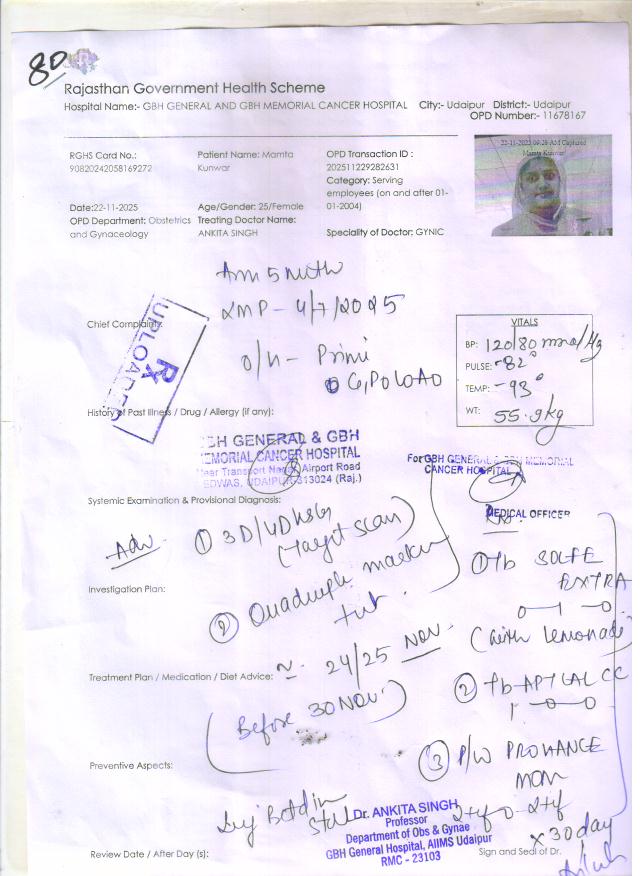 80
Rajasthan Government Health Scheme
Hospital Name:- GBH GENERAL AND GBH MEMORIAL CANCER HOSPITAL City:- Udaipur District:- Udaipur
OPD Number:- 11678167
RGHS Card No.:
90820242058169272
Patient Name: Mamta
Kunwar
OPD Transaction ID :
202511229282631
Category: Serving
employees (on and after 01-
01-2004)
22-11-2025 09:28 AM Captured
Mamta Kunwar
Date:22-11-2025
OPD Department: Obstetrics
and Gynaecology
Age/Gender: 25/Female
Treating Doctor Name:
ANKITA SINGH
Speciality of Doctor: GYNIC
LMP - 4/7/2025
Chief Complaint:
UPLOADED
Rx
Primi
G1P0L0A0
VITALS
BP: 120/80 mmHg
PULSE: -82
TEMP: -93°
WT: 55.9kg
History of Past Illness / Drug / Allergy (if any):
GBH GENERAL & GBH
MEMORIAL CANCER HOSPITAL
Near Transport Nagar, Airport Road
BEDWAS, UDAIPUR-313024 (Raj.)
For GBH GENERAL & GBH MEMORIAL
CANCER HOSPITAL
MEDICAL OFFICER
Systemic Examination & Provisional Diagnosis:
Adv.
① 3D/4D USG
(Target scan)
Investigation Plan:
② Quadruple marker
test.
24/25 NOV.
Treatment Plan / Medication / Diet Advice:
(Before 30 NOV.)
① Tb
EXTRA
0-1-0
(with lemonade)
② Tb
1-0-0
③ P/W PROHANCE
MOM
Preventive Aspects:
2tsf-0-2tsf
x 30 day
Dr. ANKITA SINGH
Professor
Department of Obs & Gynae
GBH General Hospital, AIIMS Udaipur
RMC - 23103
Review Date / After Day (s):
Sign and Seal of Dr.